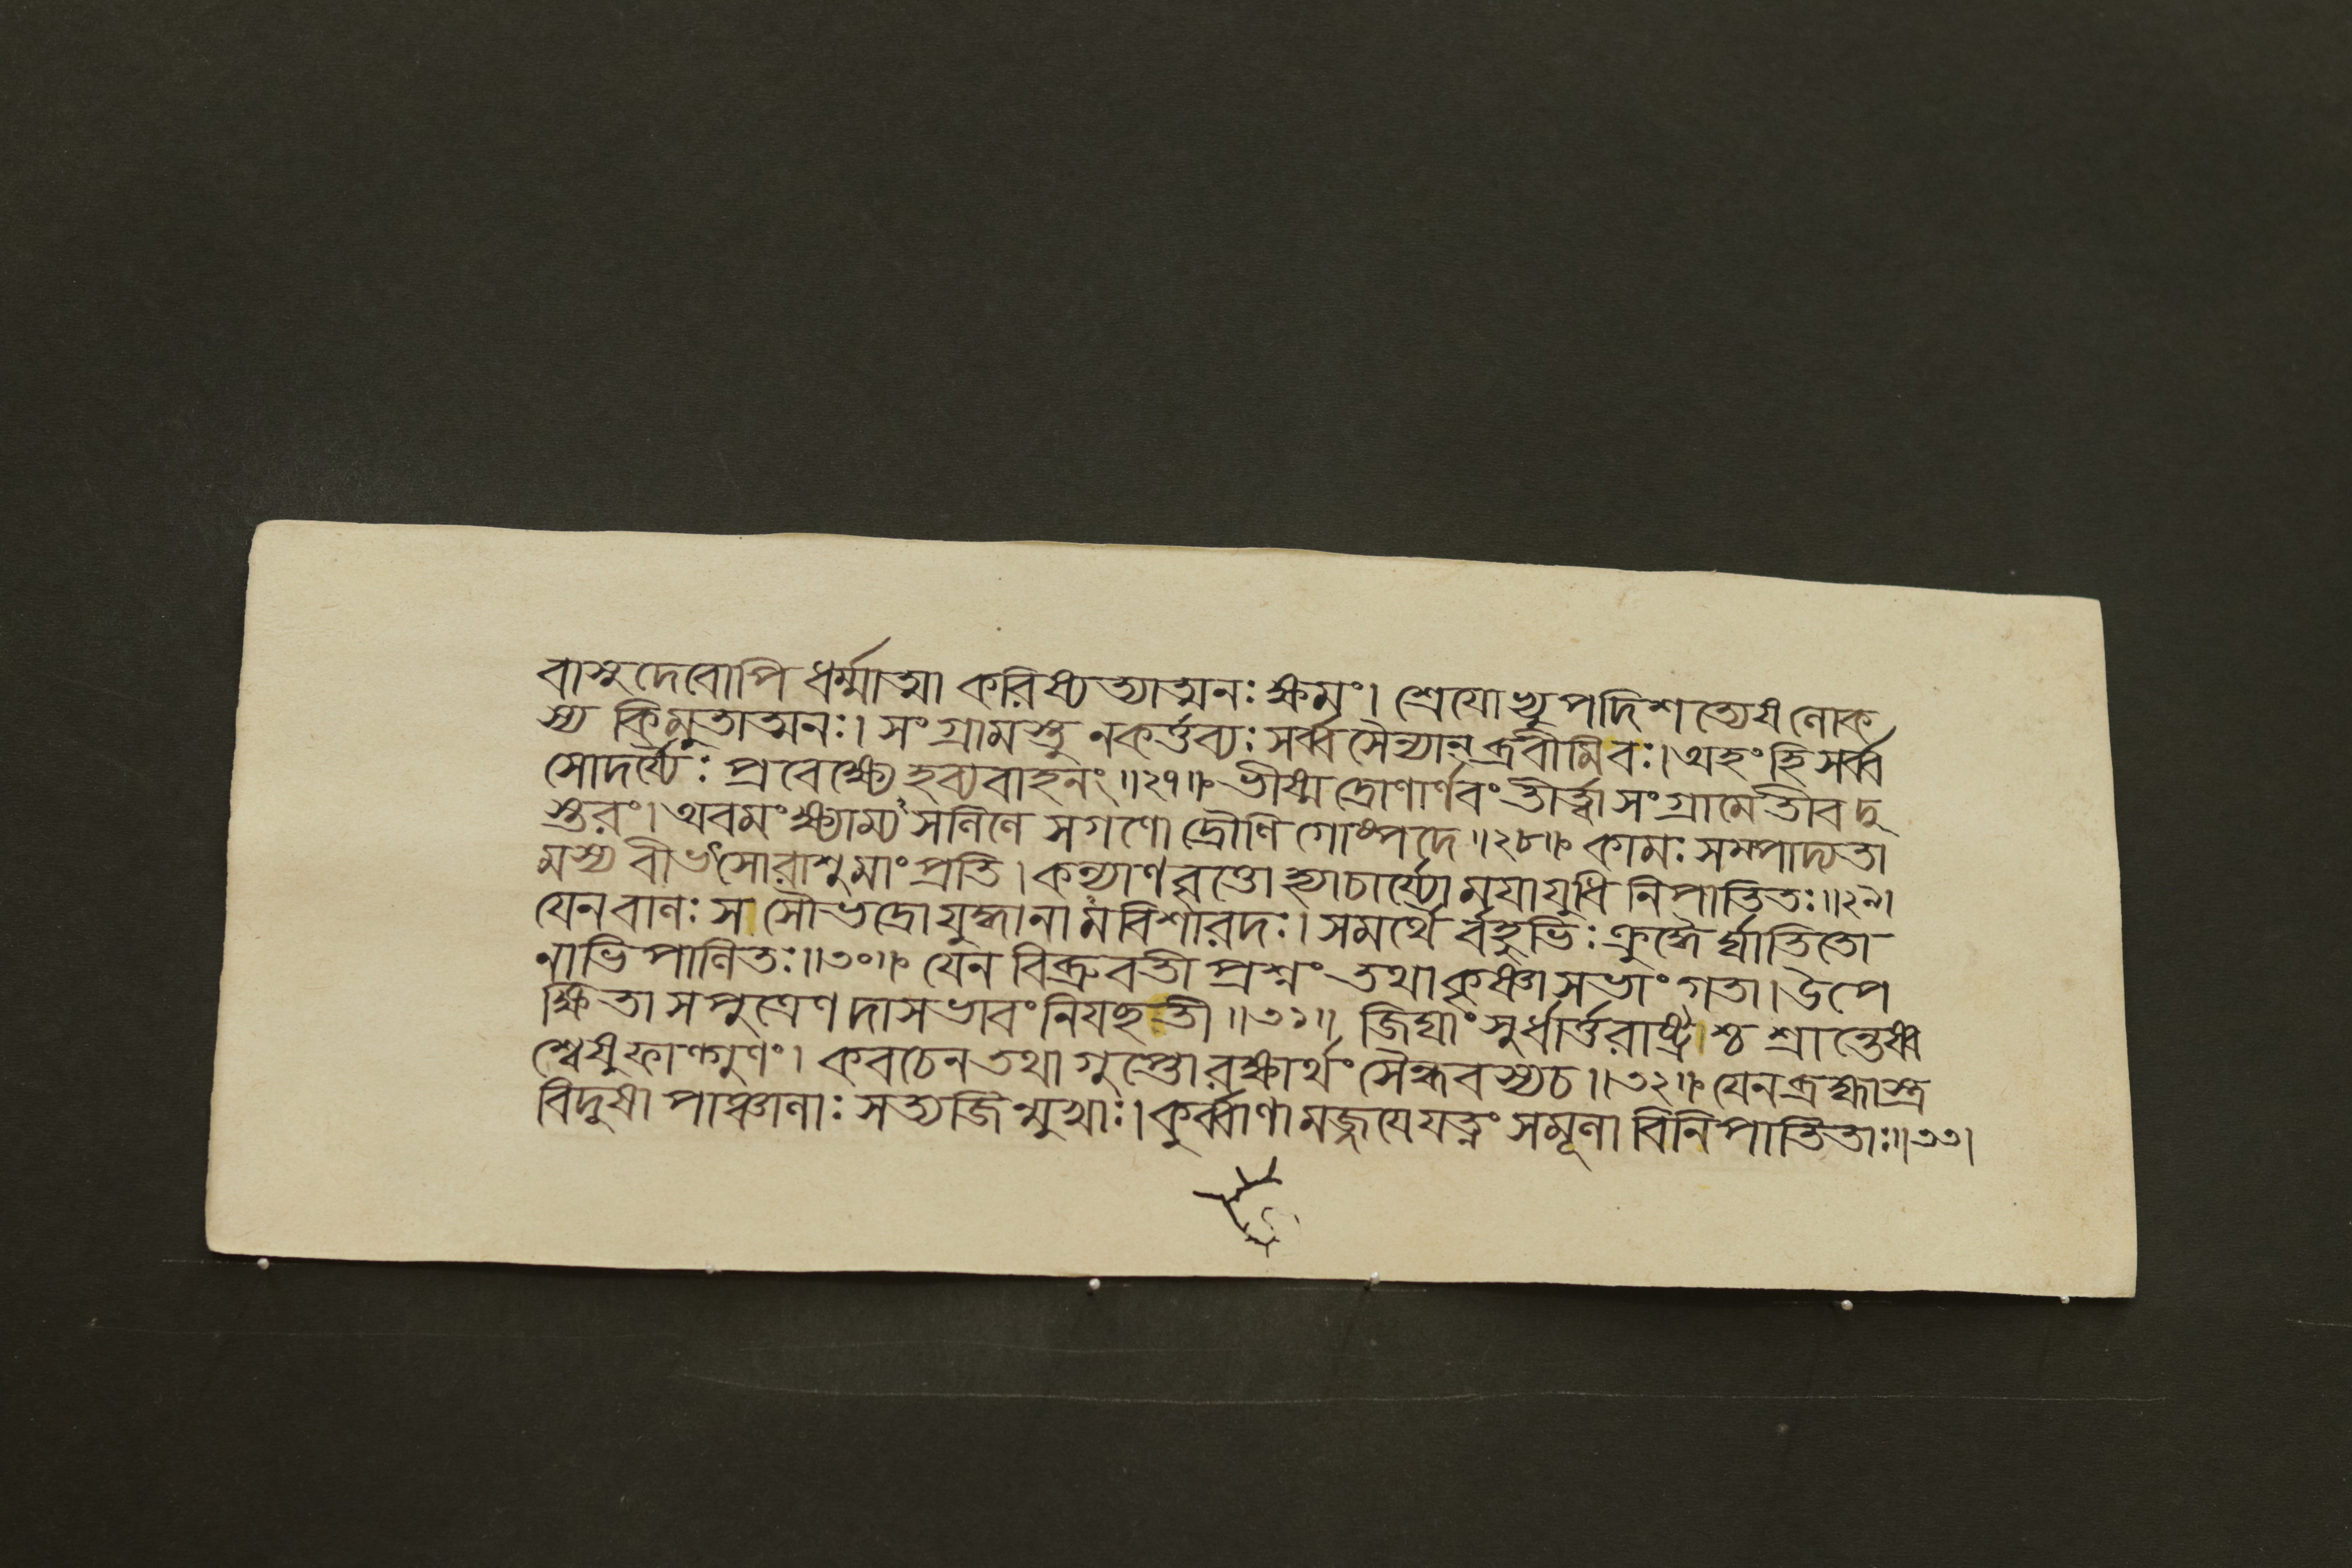 বাসুদেবোপি ধর্ম্মাত্মা করিষ্যত্যাত্মনঃ ক্ষমং। শ্রেযোহ্যুপদিশত্যেষ লোক
স্য কিমুতাত্মনঃ। সংগ্রামস্তু নকর্ত্তব্যঃ সর্ব্বসৈন্যান্ ব্রবীমিবঃ। অহংহি সর্ব্ব
সোদর্য্যৈঃ প্রবেক্ষ্যে হব্যবাহনং॥২৭॥ ভীষ্মদ্রোণার্ণবং তীর্ত্ত্বা সংগ্রামে তীব দু
স্তরং। অবমংক্ষ্যাম্য সলিলে সগণো দ্রৌণি গোষ্পদে॥২৮॥ কামঃ সম্পদ্যতা
মস্য বীভৎসোরাশুমাং প্রতি। কল্যাণবৃত্তো হ্যাচার্য্যো মযাযুধি নিপাতিতঃ॥২৯।
যেনবালঃ স সৌভদ্রোযুদ্ধানামবিশারদঃ। সমর্থৈ র্বহুভিঃ ক্রুদ্ধৈ র্ঘাতিতো
নাভিপালিতঃ॥৩০॥ যেন বিব্রুবতী প্রশ্নং তথা কৃষ্ণা সভাং গতা। উপে
ক্ষিতা সপুত্রেণ দাসভাবংনিযচ্ছতী॥৩১॥ জিঘাংসুর্ধার্ত্তরাষ্ট্রশ্চ শ্রান্তেষ্ব
শ্বেষুফাল্গুণং। কবচেন তথাগুপ্তো রক্ষার্থং সৈন্ধবস্যচ॥৩২॥ যেন ব্রহ্মাস্ত্র
বিদুষা পাঞ্চালাঃ সত্যজিন্মুখাঃ। কুর্ব্বাণা মজ্জযেযত্নং সমূলা বিনিপাতিতাঃ॥৩৩।